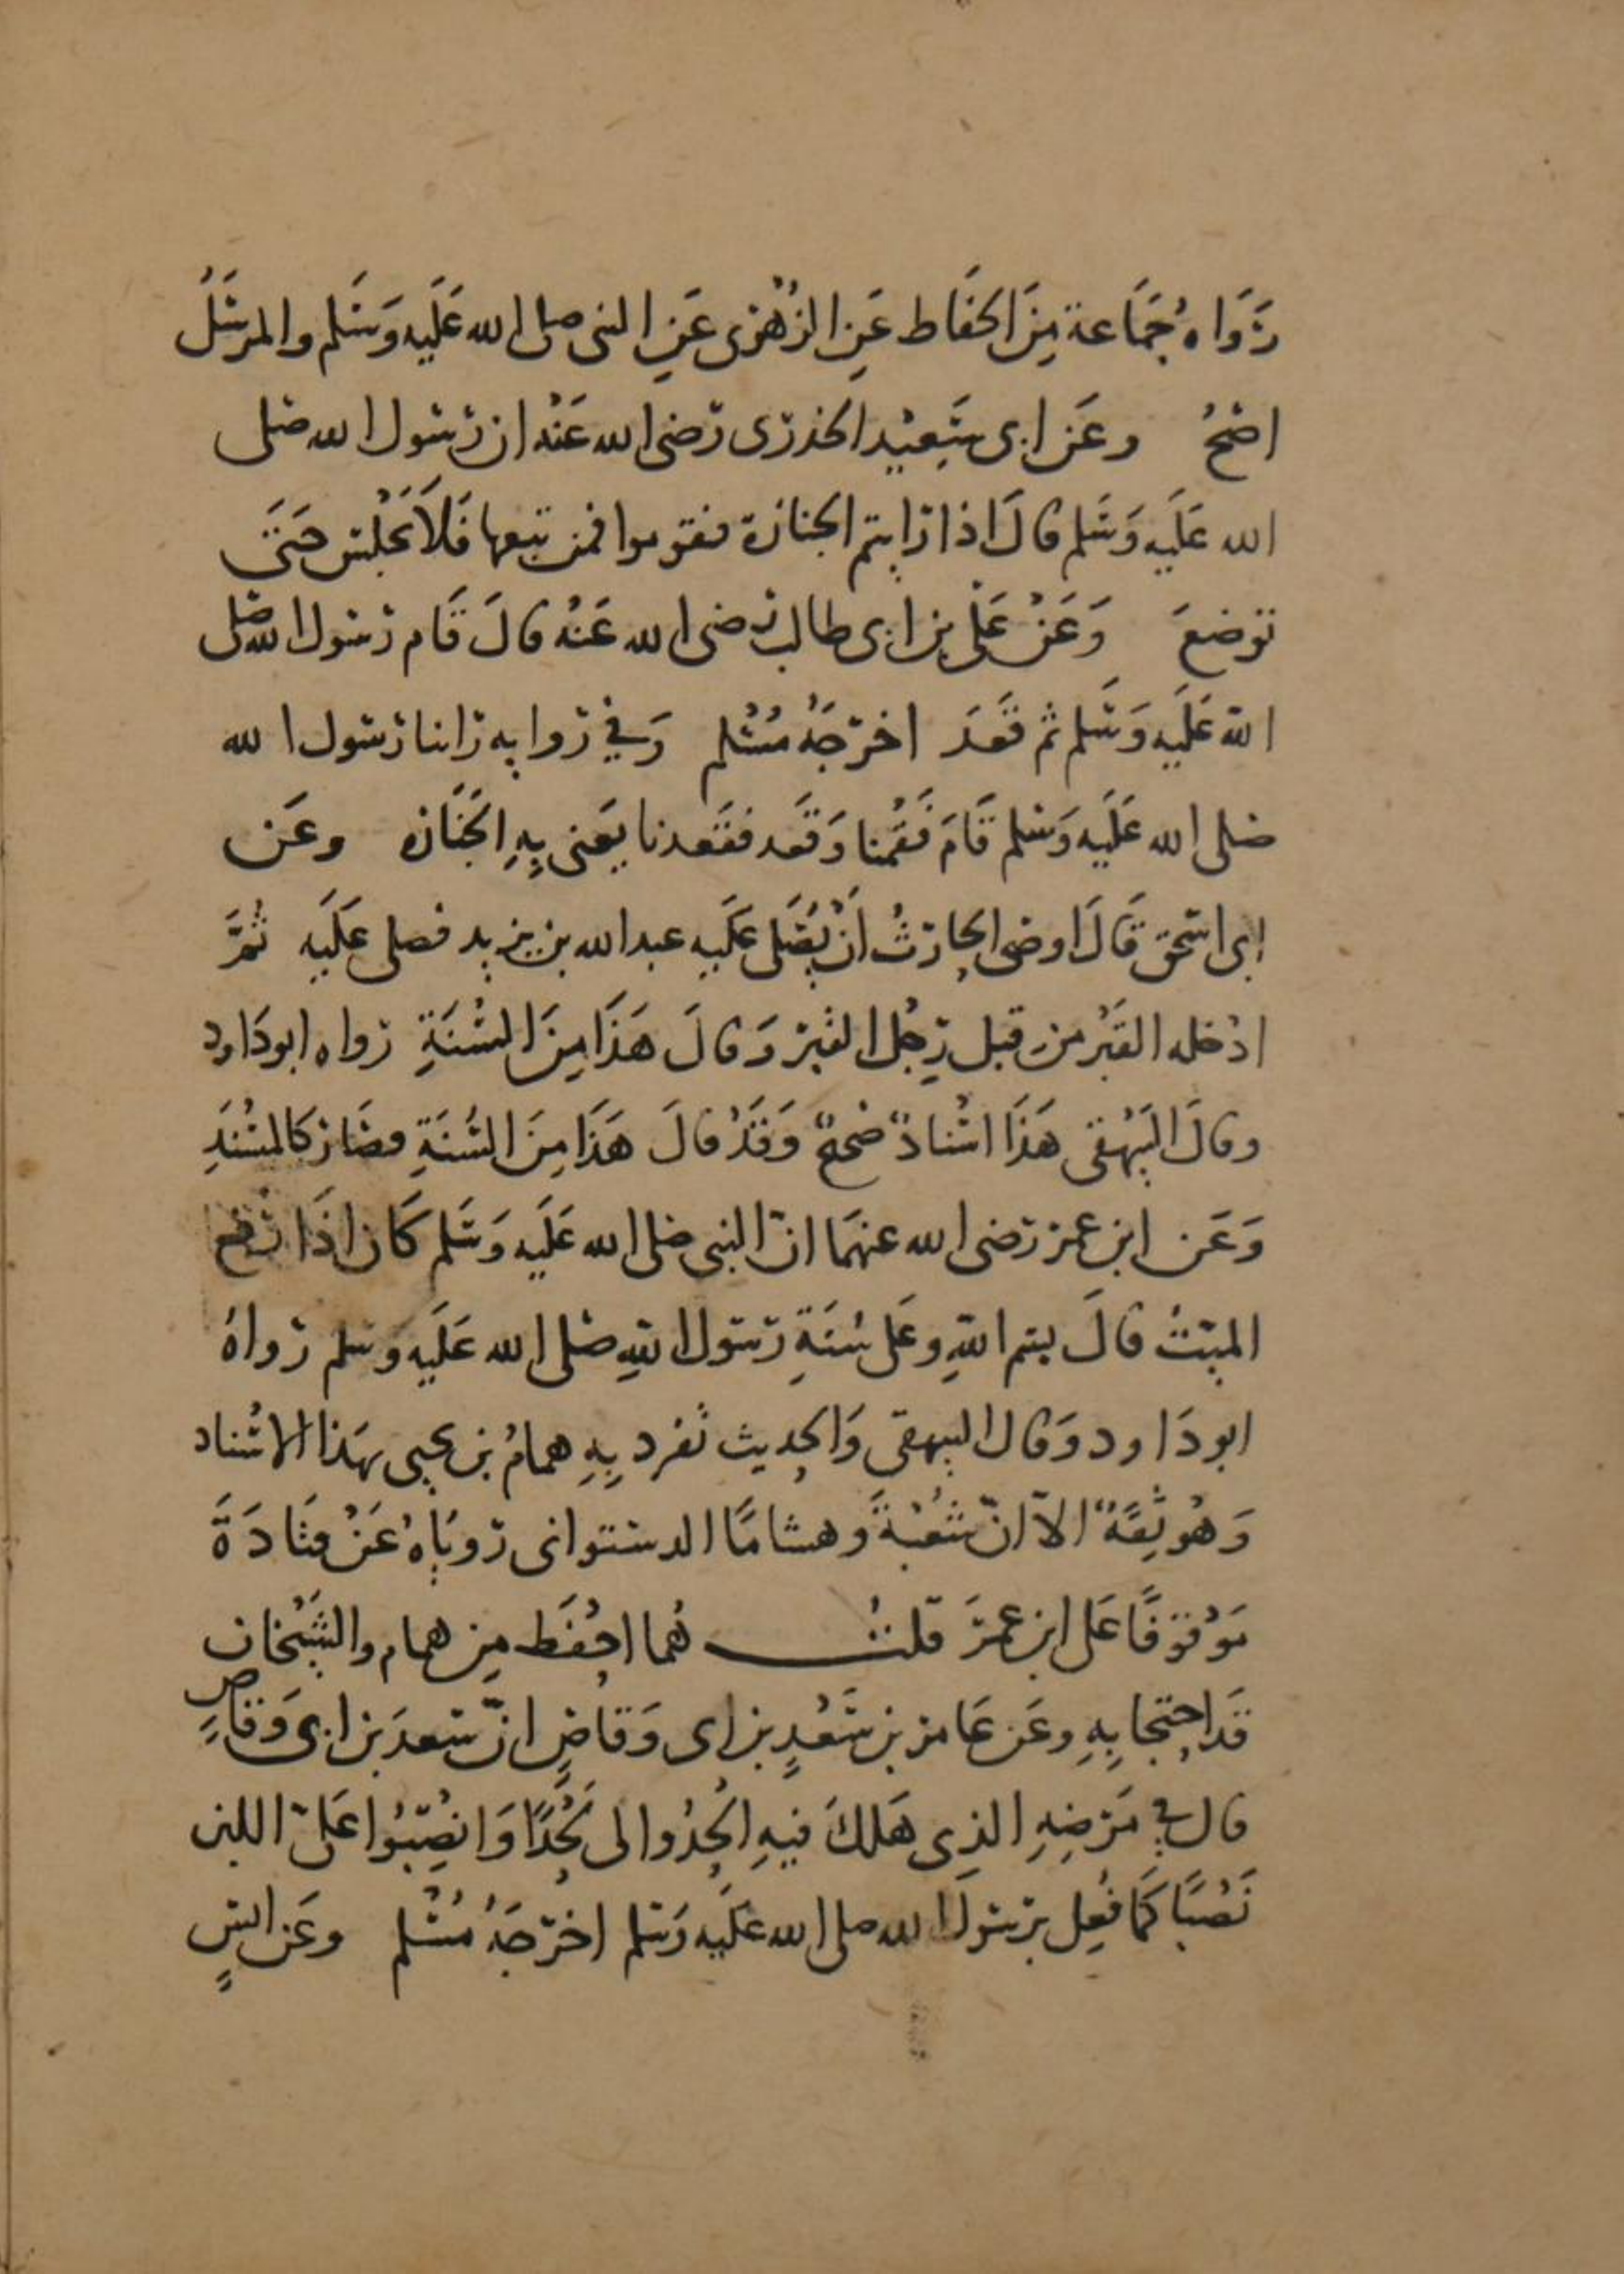 رَوَاهُ جَمَاعة مِنَ الحفَاط عَنِ الزُهْرى عَنِ النبى صلى الله عَلَيه وَسَلم والمرسَلُ
اصَحُ وعَن ابى سَعِيْد الخدرى رضى الله عَنْه ان رسول الله صلى
الله عَلَيه وَسَلم قالَ اذا رايتم الجنازة فقوموا فمن تبعها فَلَا يَجْلس حَتى
توضعَ وَعَنْ عَلى بن ابى طالب رضى الله عَنْهُ قالَ قَام رَسول الله صلى
الله عَلَيه وَسَلم ثم قَعَدَ اخرجَهُ مُسْلم وَفي رواية راينا رسول الله
صلى الله عَلَيه وَسلم قَامَ فَقُمنا وَقَعد فقَعدنا يَعْنى بِهِ الجَنَازه وعَن
ابى اسحق قَالَ اوصَى الحارثُ اَنْ يُصَلى عَلَيه عبد الله بن يزيد فصلى عَلَيه ثُمَّ
ادْخله القَبْر من قبل رِجْل القَبْر وَقالَ هَذَا مِنَ السُنَةِ رَواه ابو دَاود
وقالَ البَيْهقى هَذَا اسْنادٌ صَحيحٌ وَقَدْ قالَ هَذَا مِنَ السُنَةِ فصَارَ كالمسْنَدِ
وَعَن ابن عمر رَضى الله عنهمَا انّ النبى صلى الله عَلَيه وَسَلم كَان اذَا وضع
الميتُ قالَ بسم اللهِ وعَلى سُنَةِ رَسول اللهِ صلى الله عَلَيه وسلم رَواهُ
ابو دَاود وَقال البيهقى وَالحديث تَفرد بِهِ همامُ بن يحيى بهَذا الاسْناد
وَهُو ثِقَةٌ الاّ انّ شُعْبةَ وَهشامًا الدستوانى رَويَاهُ عَنْ قتَادَةَ
مَوْقوفًا عَلى ابن عمَرَ قلتُ هُما احْفَط مِن همام والشَيْخان
قَد احتجا بِهِ وعَن عَامر بن سَعْدٍ بن ابى وَقاصٍ انّ سَعدَ بن ابى وَقاصٍ
قال في مَرَضِهِ الذى هَلكَ فيهِ الحُدُوا لى لَحْدًا وَانصِبُوا عَلىّ اللبن
نَصْبًا كَمَا فُعِل برَسول الله صلى الله عَلَيه وَسلم اخرجَهُ مُسْلم وعَن انسٍ